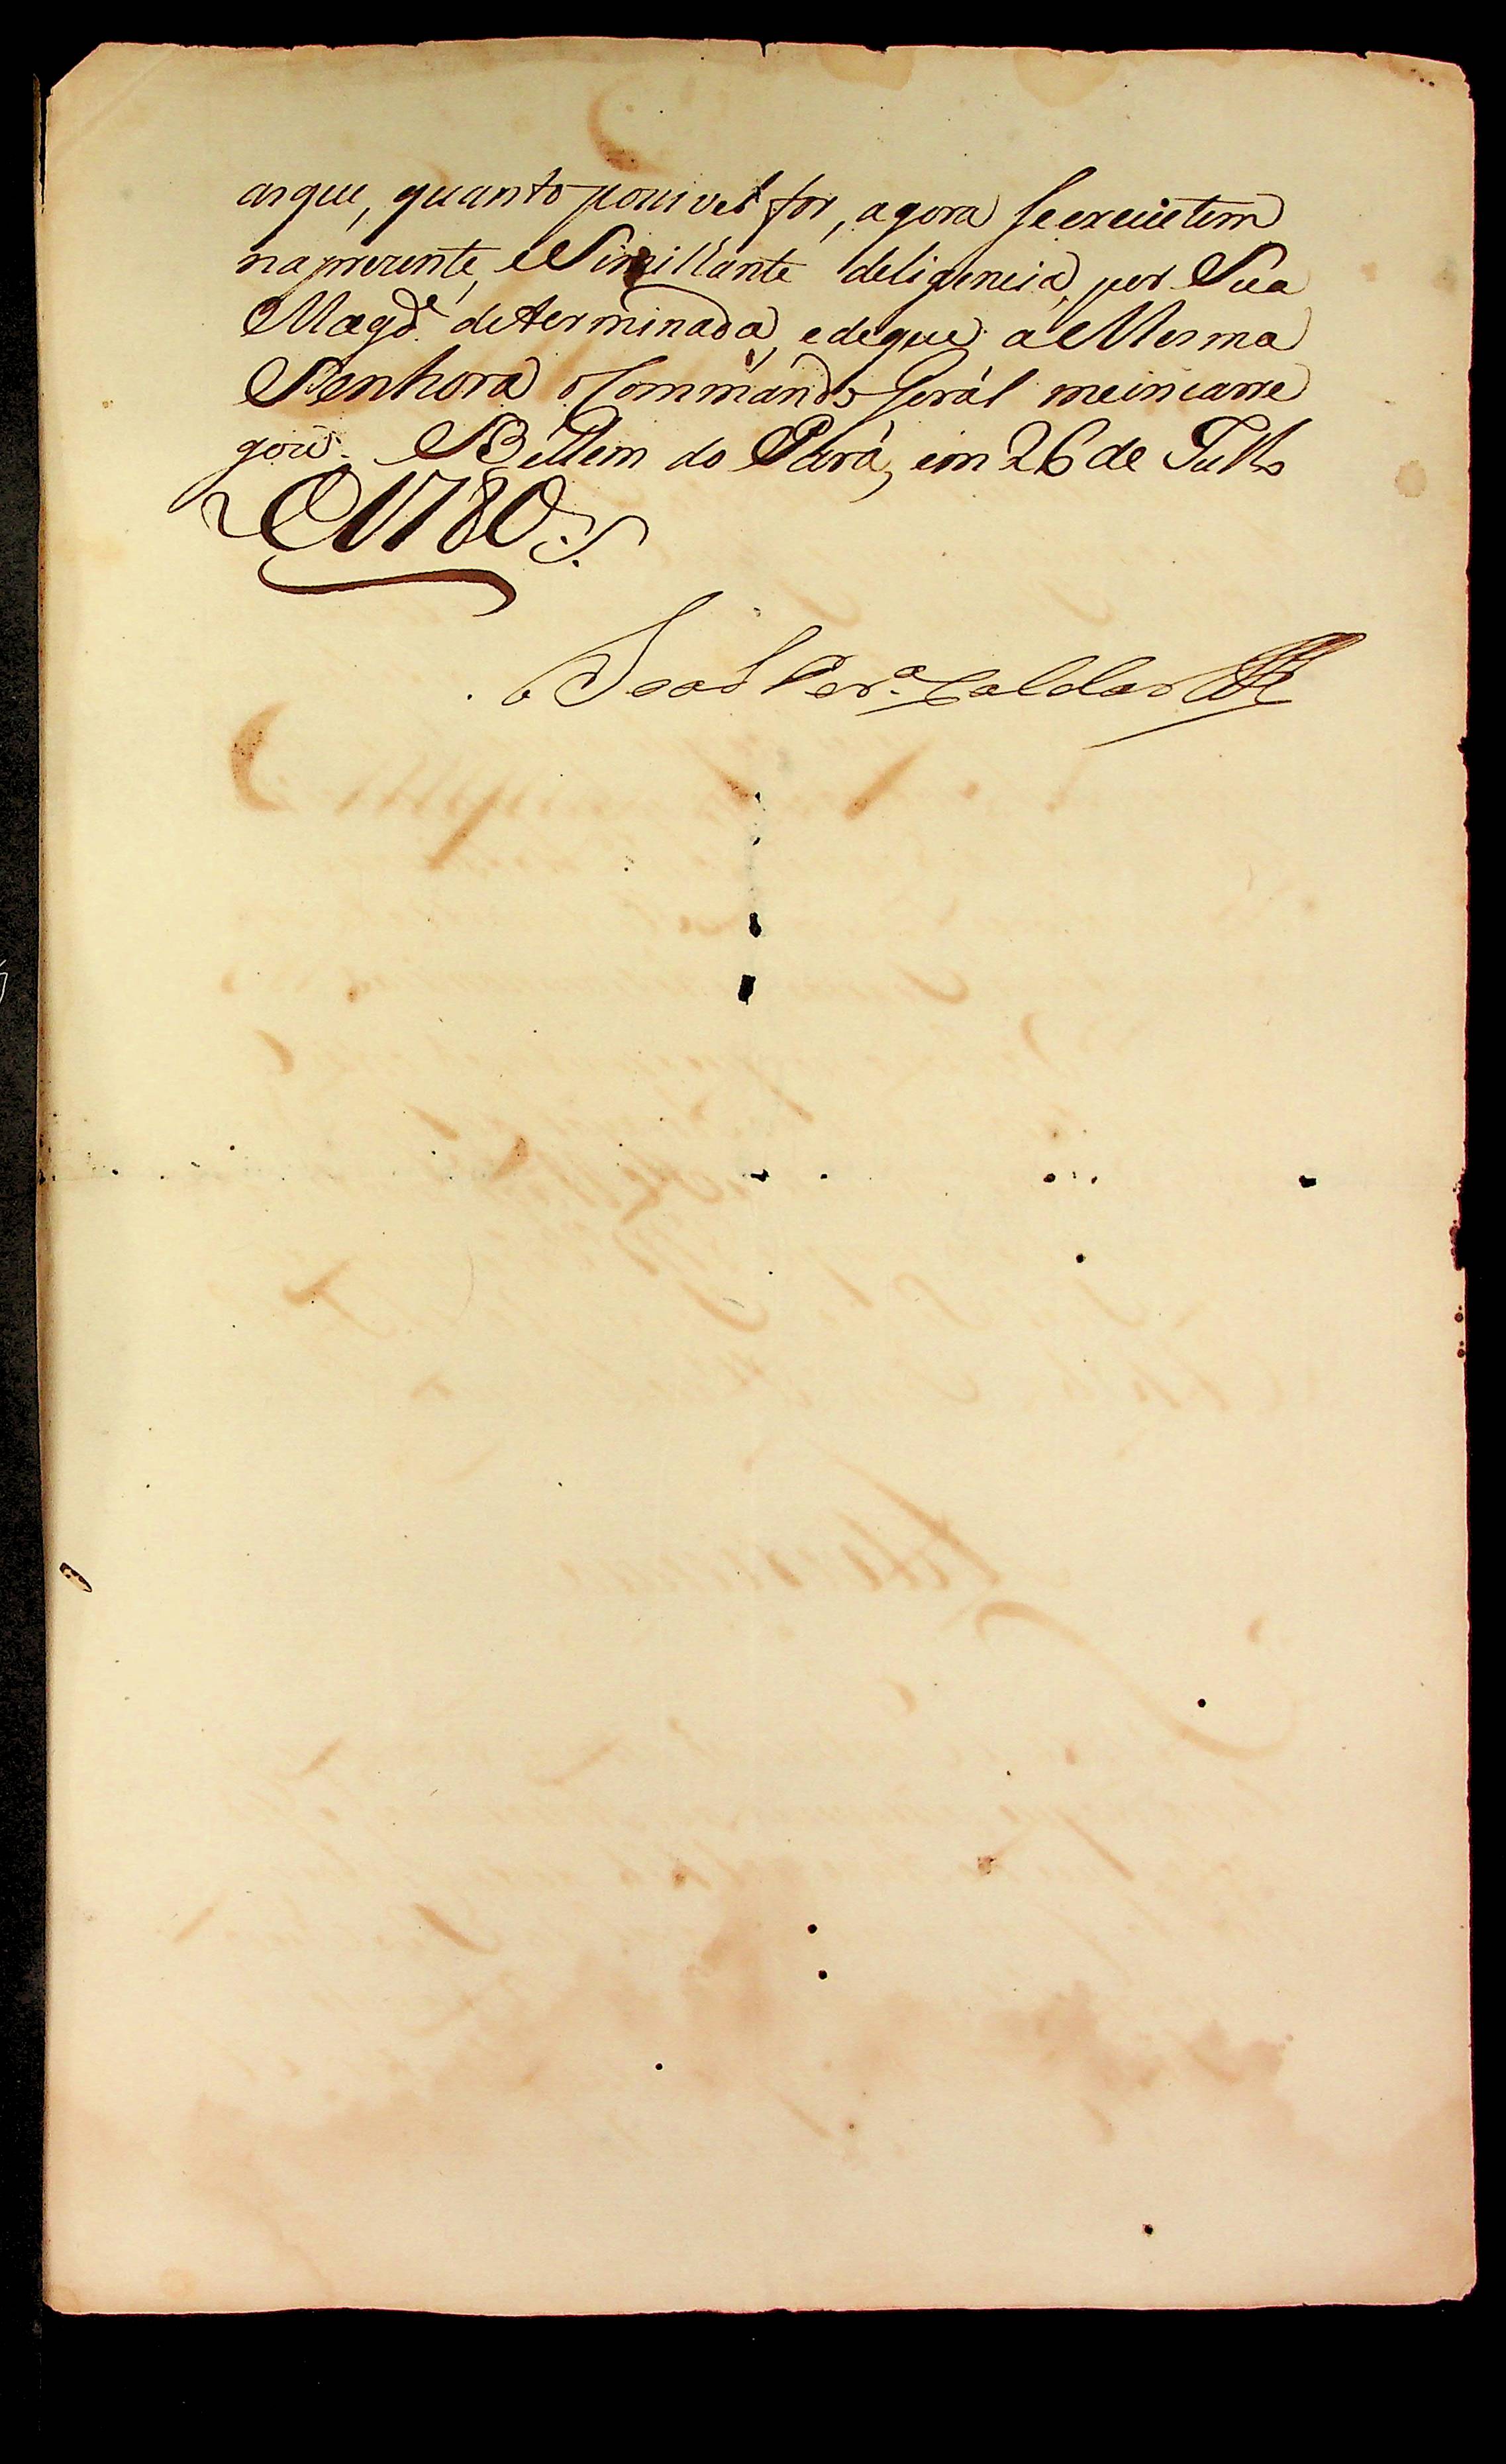 asque, quanto possivel for, agora se executem
na prezente, e Simillante deligencia, por Sua
Magd.e determinada, e de que a Mesma
Senhora o Commando Geral me incarre
gou. Bellem do Pará, em 26 de Julho
de 1780.
João Per.a Caldas